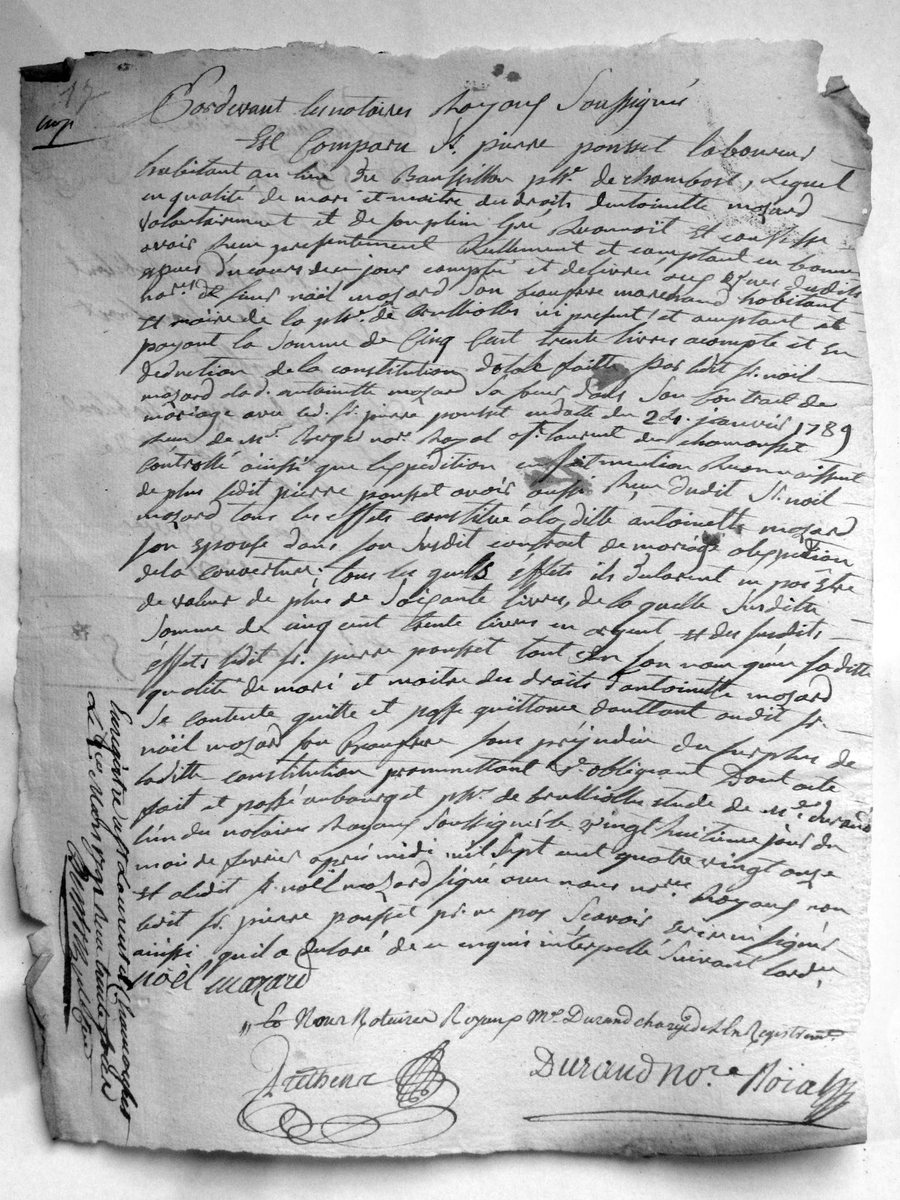 17
Pardevant les notaires Royaux Soussignés
Est Comparu Sr. pierre pousset laboureur
habitant au lieu du paroisse de chambost, Lequel
en qualité de mari et maitre des droits dantoinette mozard
volontairement et de son plein Gré Reconnoit et confesse
avoir Reçu presentement Reellement et comptant en bonnes
especes du cours de ce jour compté et delivrés aux vues desdits
nores. de sieur nöël mozard son beaufrere marchand habitant
et maire de la psse. de brulliolles ici present et acceptant et
payant la Somme de Cinq Cent trente livres acompte et en
deduction de la constitution dotale faitte par ledit sr. noël
mozard alad. antoinette mozard Sa sœur dans Son Contrat de
mariage avec led. sr. pierre pousset endatte du 24 janvier 1789
Reçu de Me. Berger nore. Royal a St. laurent de chamousset
Controllé ainsi que lexpédition en fait mention Reconnaissant
de plus ledit pierre pousset avoir aussi Reçu dudit Sr. noël
mozard tous les effets constitué à la ditte antoinette mozard
son epouse dans son Susdit contrat de mariage a lexception
de la couverture; tous les quels effets ils declarent ne pas etre
de valeur de plus de Soixante livres, de la quelle Susditte
Somme de cinq cent trente livres en argent et des Susdits
éffets ledit sr. pierre pousset tant En son nom qu'en saditte
qualité de mari et maitre des droits d'antoinette mozard
Se contente quitte et passe quittance dauttant audit sr.
nöël mozard son Beaufrere sans préjudice du Surplus de
laditte constitution promettant obligeant Dont acte
fait et passé au bourg et psse. de brulliolles etude de Me. durand
lun des notaires Royaux Soussignés le vingt huitieme jour du
mois de fevrier après midi mil Sept cent quatre vingt onze
et a ledit sr. nöël mozard signé avec nous nores. Royaux non
ledit sr. pierre pousset pr. ne pas Scavoir ecrire ni signer
ainsi qu'il a declaré de ce enquis interpellé suivant lordce.
nöël mozard
Et Nous Notaires Royaux Me. Durand chargé de lEnRegistremt.
Durand Nore. Roial
Enregistré a St Laurent de Chamousset